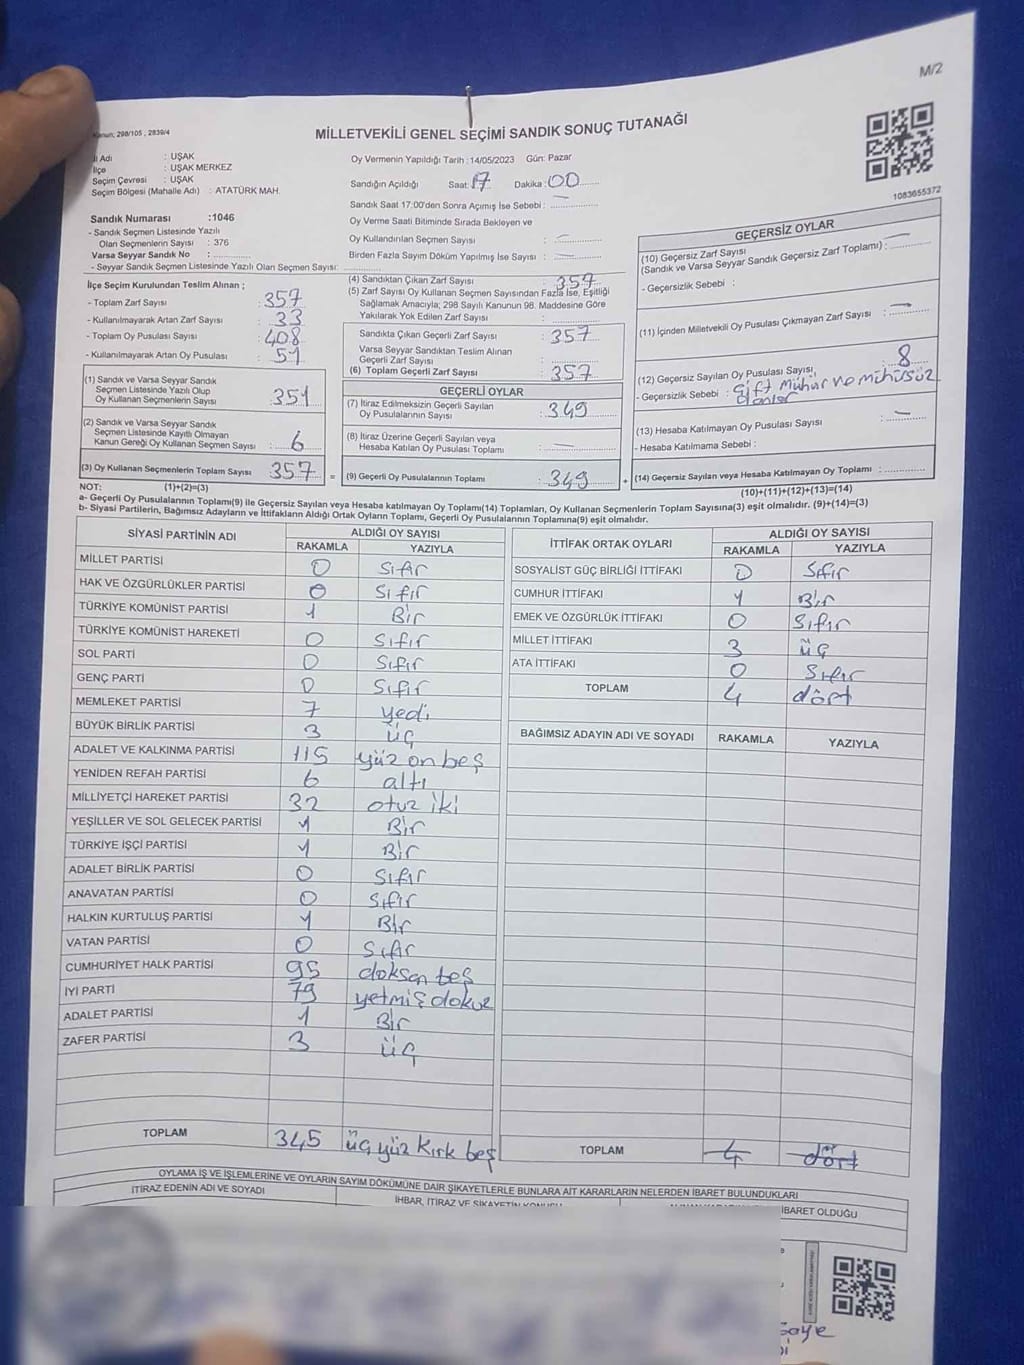 M/2
Kanun; 298/105 , 2839/4
MİLLETVEKİLİ GENEL SEÇİMİ SANDIK SONUÇ TUTANAĞI
1083655372
İl Adı : UŞAK
İlçe : UŞAK MERKEZ
Seçim Çevresi : UŞAK
Seçim Bölgesi (Mahalle Adı) : ATATÜRK MAH.
Sandık Numarası :1046
- Sandık Seçmen Listesinde Yazılı
Olan Seçmenlerin Sayısı : 376
Varsa Seyyar Sandık No :
- Seyyar Sandık Seçmen Listesinde Yazılı Olan Seçmen Sayısı:
Oy Vermenin Yapıldığı Tarih :14/05/2023 Gün: Pazar
Sandığın Açıldığı Saat: 17 Dakika : 00
Sandık Saat 17:00'den Sonra Açımış İse Sebebi : —
Oy Verme Saati Bitiminde Sırada Bekleyen ve
Oy Kullandırılan Seçmen Sayısı : —
Birden Fazla Sayım Döküm Yapılmış İse Sayısı : —
İlçe Seçim Kurulundan Teslim Alınan ;
- Toplam Zarf Sayısı : 357
- Kullanılmayarak Artan Zarf Sayısı : 33
- Toplam Oy Pusulası Sayısı : 408
- Kullanılmayarak Artan Oy Pusulası : 51
(1) Sandık ve Varsa Seyyar Sandık
Seçmen Listesinde Yazılı Olup
Oy Kullanan Seçmenlerin Sayısı : 351
(2) Sandık ve Varsa Seyyar Sandık
Seçmen Listesinde Kayıtlı Olmayan
Kanun Gereği Oy Kullanan Seçmen Sayısı : 6
(3) Oy Kullanan Seçmenlerin Toplam Sayısı : 357 =
(4) Sandıktan Çıkan Zarf Sayısı : 357
(5) Zarf Sayısı Oy Kullanan Seçmen Sayısından Fazla İse, Eşitliği
Sağlamak Amacıyla; 298 Sayılı Kanunun 98. Maddesine Göre
Yakılarak Yok Edilen Zarf Sayısı :
Sandıkta Çıkan Geçerli Zarf Sayısı : 357
Varsa Seyyar Sandıktan Teslim Alınan
Geçerli Zarf Sayısı :
(6) Toplam Geçerli Zarf Sayısı : 357
GEÇERLİ OYLAR
(7) İtiraz Edilmeksizin Geçerli Sayılan
Oy Pusulalarının Sayısı : 349
(8) İtiraz Üzerine Geçerli Sayılan veya
Hesaba Katılan Oy Pusulası Toplamı : —
(9) Geçerli Oy Pusulalarının Toplamı : 349 +
GEÇERSİZ OYLAR
(10) Geçersiz Zarf Sayısı
(Sandık ve Varsa Seyyar Sandık Geçersiz Zarf Toplamı) : —
- Geçersizlik Sebebi :
(11) İçinden Milletvekili Oy Pusulası Çıkmayan Zarf Sayısı : —
(12) Geçersiz Sayılan Oy Pusulası Sayısı, : 8
- Geçersizlik Sebebi : Çift Mühür ve mühüsüz
olanlar
(13) Hesaba Katılmayan Oy Pusulası Sayısı : —
- Hesaba Katılmama Sebebi :
(14) Geçersiz Sayılan veya Hesaba Katılmayan Oy Toplamı :
NOT: (1)+(2)=(3)
(10)+(11)+(12)+(13)=(14)
a- Geçerli Oy Pusulalarının Toplamı(9) ile Geçersiz Sayılan veya Hesaba katılmayan Oy Toplamı(14) Toplamları, Oy Kullanan Seçmenlerin Toplam Sayısına(3) eşit olmalıdır. (9)+(14)=(3)
b- Siyasi Partilerin, Bağımsız Adayların ve İttifakların Aldığı Ortak Oyların Toplamı, Geçerli Oy Pusulalarının Toplamına(9) eşit olmalıdır.
SİYASİ PARTİNİN ADI ALDIĞI OY SAYISI
RAKAMLA YAZIYLA
MİLLET PARTİSİ 0 Sıfır
HAK VE ÖZGÜRLÜKLER PARTİSİ 0 Sıfır
TÜRKİYE KOMÜNİST PARTİSİ 1 Bir
TÜRKİYE KOMÜNİST HAREKETİ 0 Sıfır
SOL PARTİ 0 Sıfır
GENÇ PARTİ 0 Sıfır
MEMLEKET PARTİSİ 7 yedi
BÜYÜK BİRLİK PARTİSİ 3 üç
ADALET VE KALKINMA PARTİSİ 115 yüz on beş
YENİDEN REFAH PARTİSİ 6 altı
MİLLİYETÇİ HAREKET PARTİSİ 32 otuz iki
YEŞİLLER VE SOL GELECEK PARTİSİ 1 Bir
TÜRKİYE İŞÇİ PARTİSİ 1 Bir
ADALET BİRLİK PARTİSİ 0 Sıfır
ANAVATAN PARTİSİ 0 Sıfır
HALKIN KURTULUŞ PARTİSİ 1 Bir
VATAN PARTİSİ 0 Sıfır
CUMHURİYET HALK PARTİSİ 95 doksan beş
İYİ PARTİ 79 yetmiş dokuz
ADALET PARTİSİ 1 Bir
ZAFER PARTİSİ 3 üç
TOPLAM 345 üç yüz kırk beş
İTTİFAK ORTAK OYLARI ALDIĞI OY SAYISI
RAKAMLA YAZIYLA
SOSYALİST GÜÇ BİRLİĞİ İTTİFAKI 0 Sıfır
CUMHUR İTTİFAKI 1 Bir
EMEK VE ÖZGÜRLÜK İTTİFAKI 0 Sıfır
MİLLET İTTİFAKI 3 üç
ATA İTTİFAKI 0 Sıfır
TOPLAM 4 dört
BAĞIMSIZ ADAYIN ADI VE SOYADI RAKAMLA YAZIYLA
TOPLAM 4 dört
OYLAMA İŞ VE İŞLEMLERİNE VE OYLARIN SAYIM DÖKÜMÜNE DAİR ŞİKAYETLERLE BUNLARA AİT KARARLARIN NELERDEN İBARET BULUNDUKLARI
İTİRAZ EDENİN ADI VE SOYADI
İHBAR, İTİRAZ VE ŞİKAYETİN KONUSU
İBARET OLDUĞU